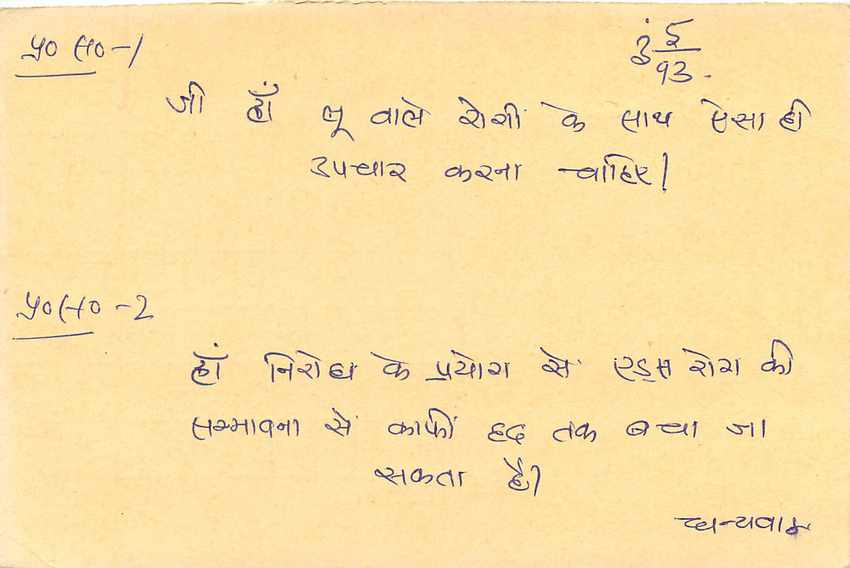 प्र० सं०-1
जी हाँ लू वाले रोगी के साथ ऐसा ही
उपचार करना चाहिए।
प्र० सं०-2
हाँ निरोध के प्रयोग से एड्स रोग की
सम्भावना से काफी हद तक बचा जा
सकता है।
धन्यवाद